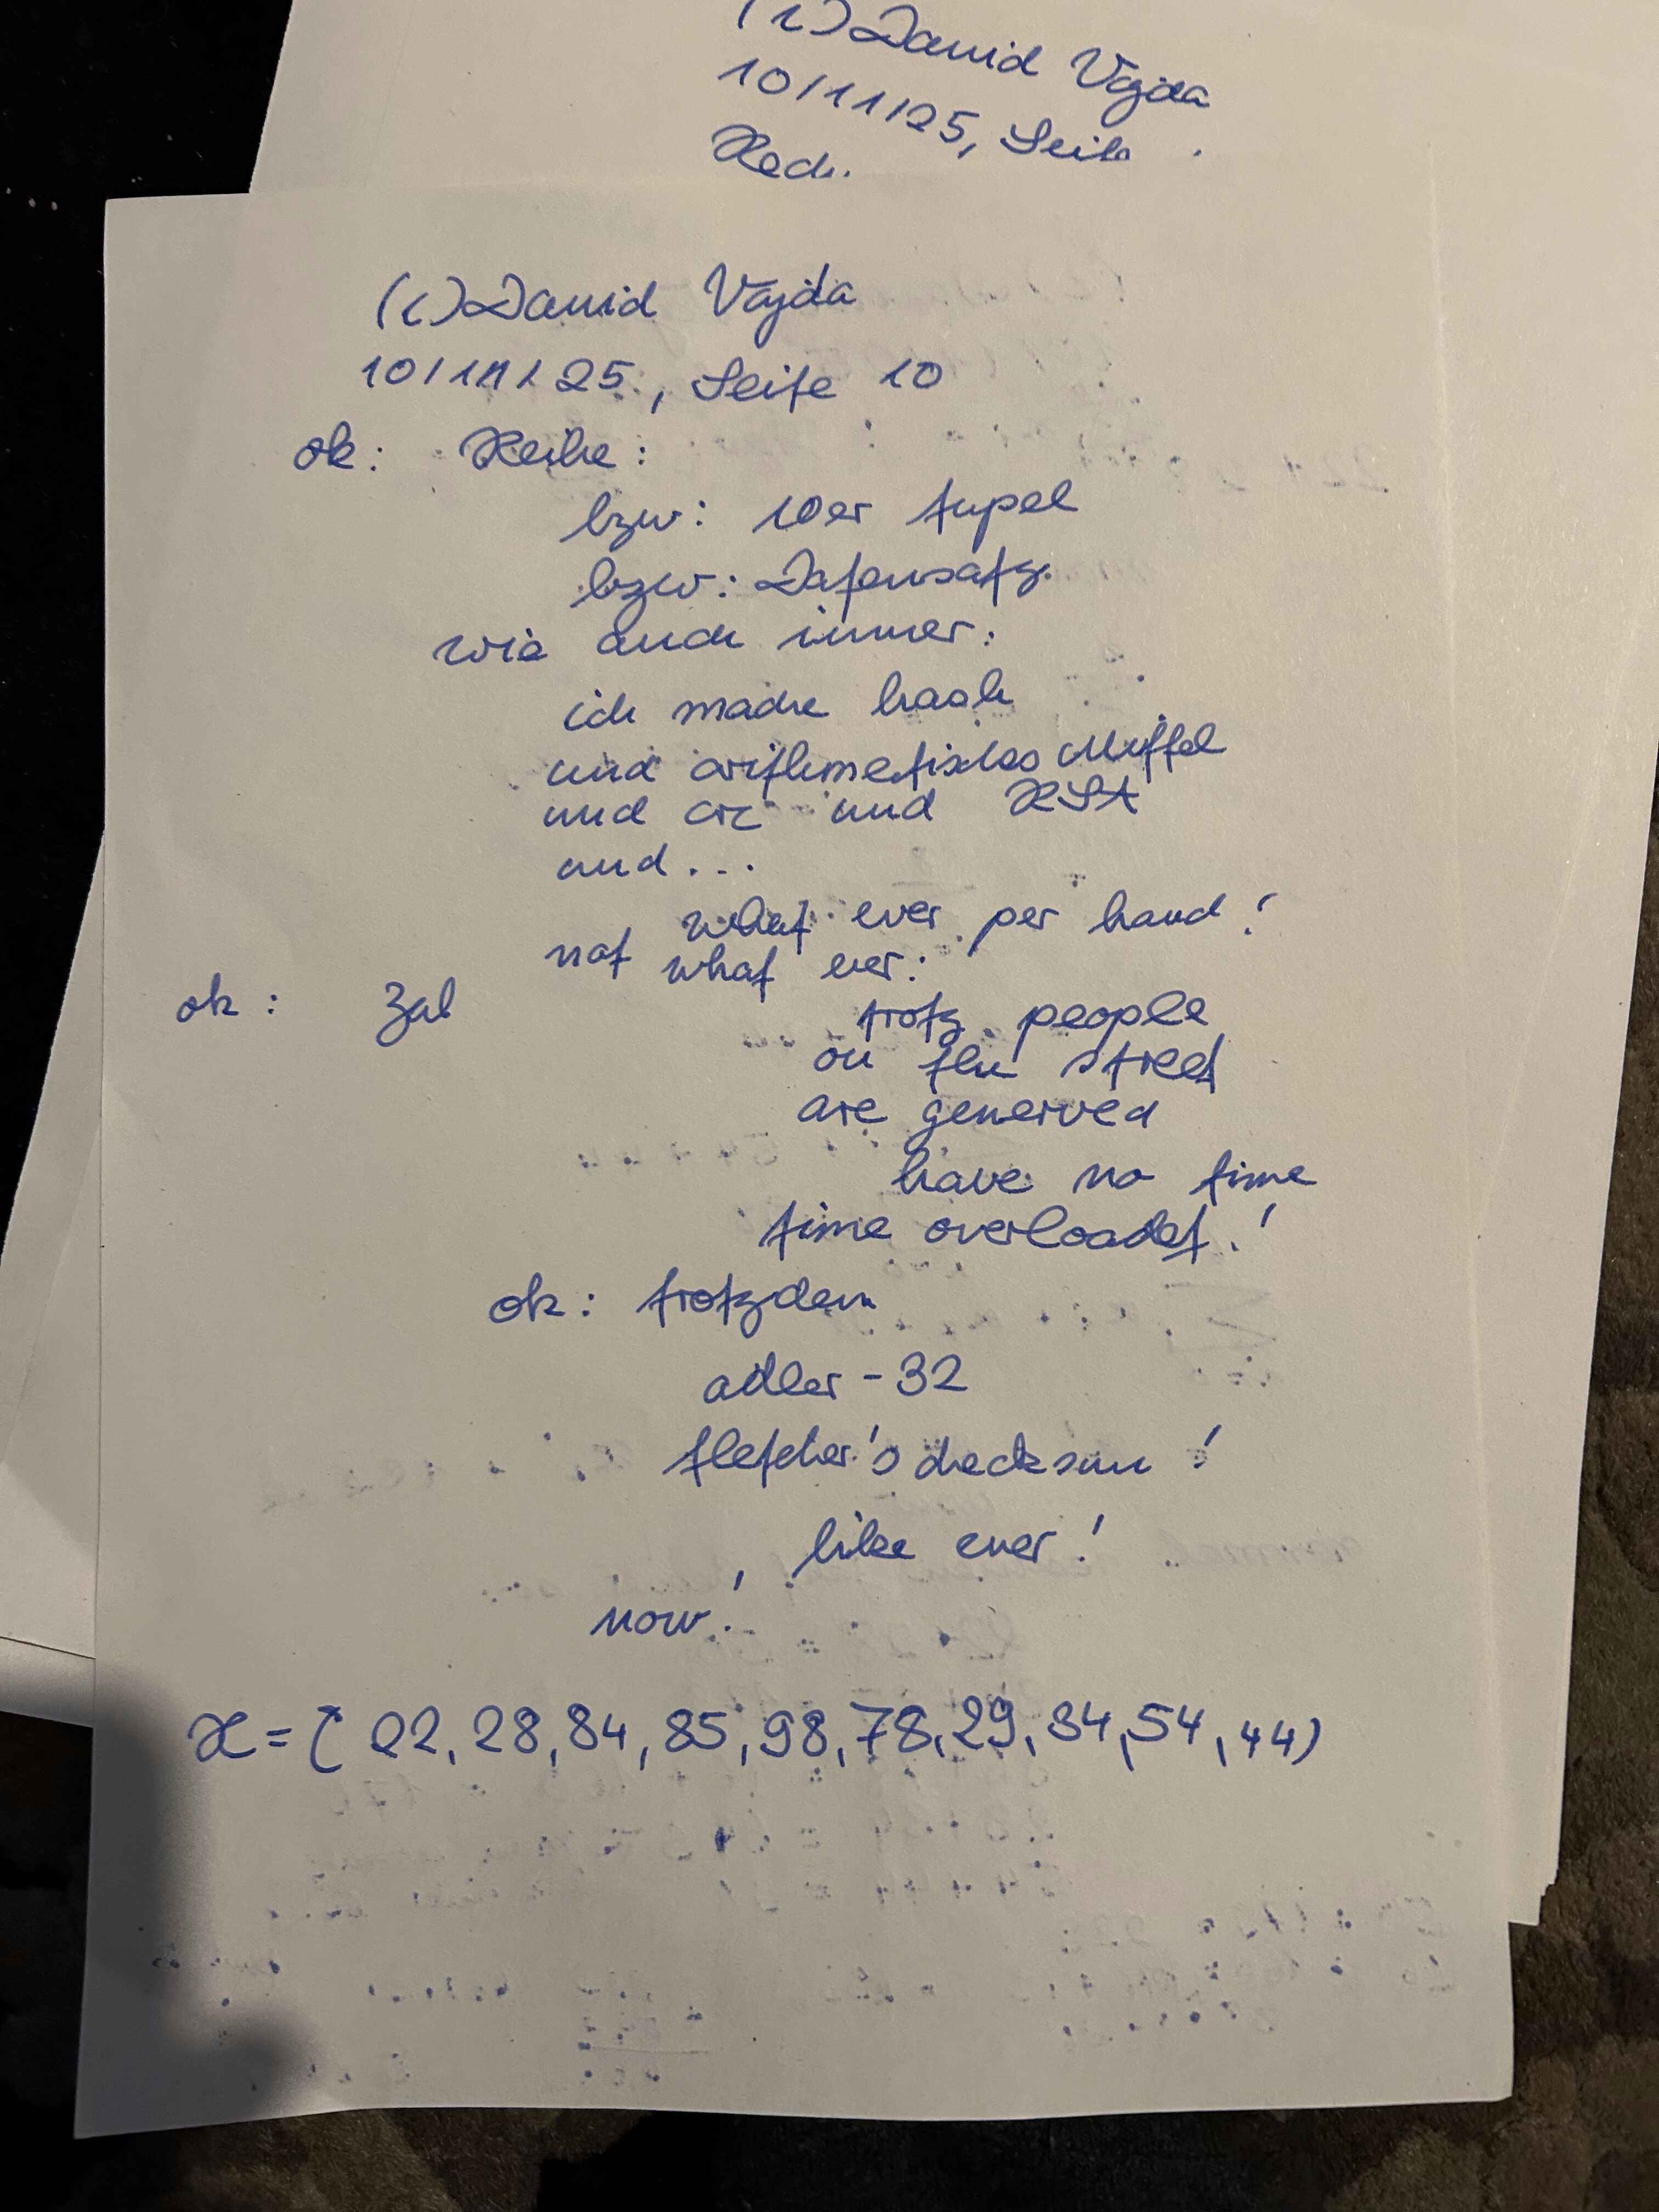 (c) David Vajda
10/11/25, Seite
Rech.
(c) David Vajda
10/11/25, Seite 10
ok: Reihe:
bzw: 10er tupel
bzw: Datensatz.
wie auch immer:
ich mache hash
und arithmetisches Mittel
und crc und RSA
und...
what ever per hand!
not what ever:
ok: Zal
trotz people
on the street
are generved
have no time
time overloadet!
ok: trotzdem
adler-32
fletcher's checksum!
like ever!
now!
x = ( 22, 28, 84, 85, 98, 78, 29, 34, 54, 44)